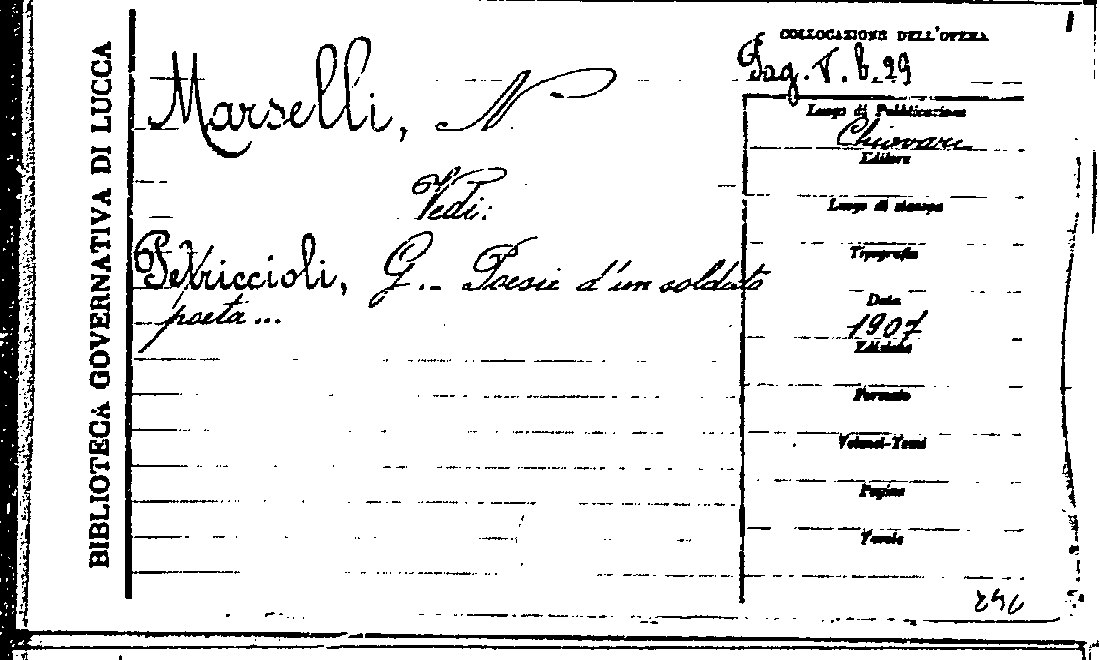 BIBLIOTECA GOVERNATIVA DI LUCCA
COLLOCAZIONE DELL'OPERA
Pag. V. b. 29
Marselli, N
Vedi:
Petriccioli, G.- Poesie d'un soldato
poeta...
Luogo di Pubblicazione
Chiavari
Editore
Luogo di stampa
Tipografia
Data
1907
Edizione
Formato
Volumi-Tomi
Pagine
Tavole